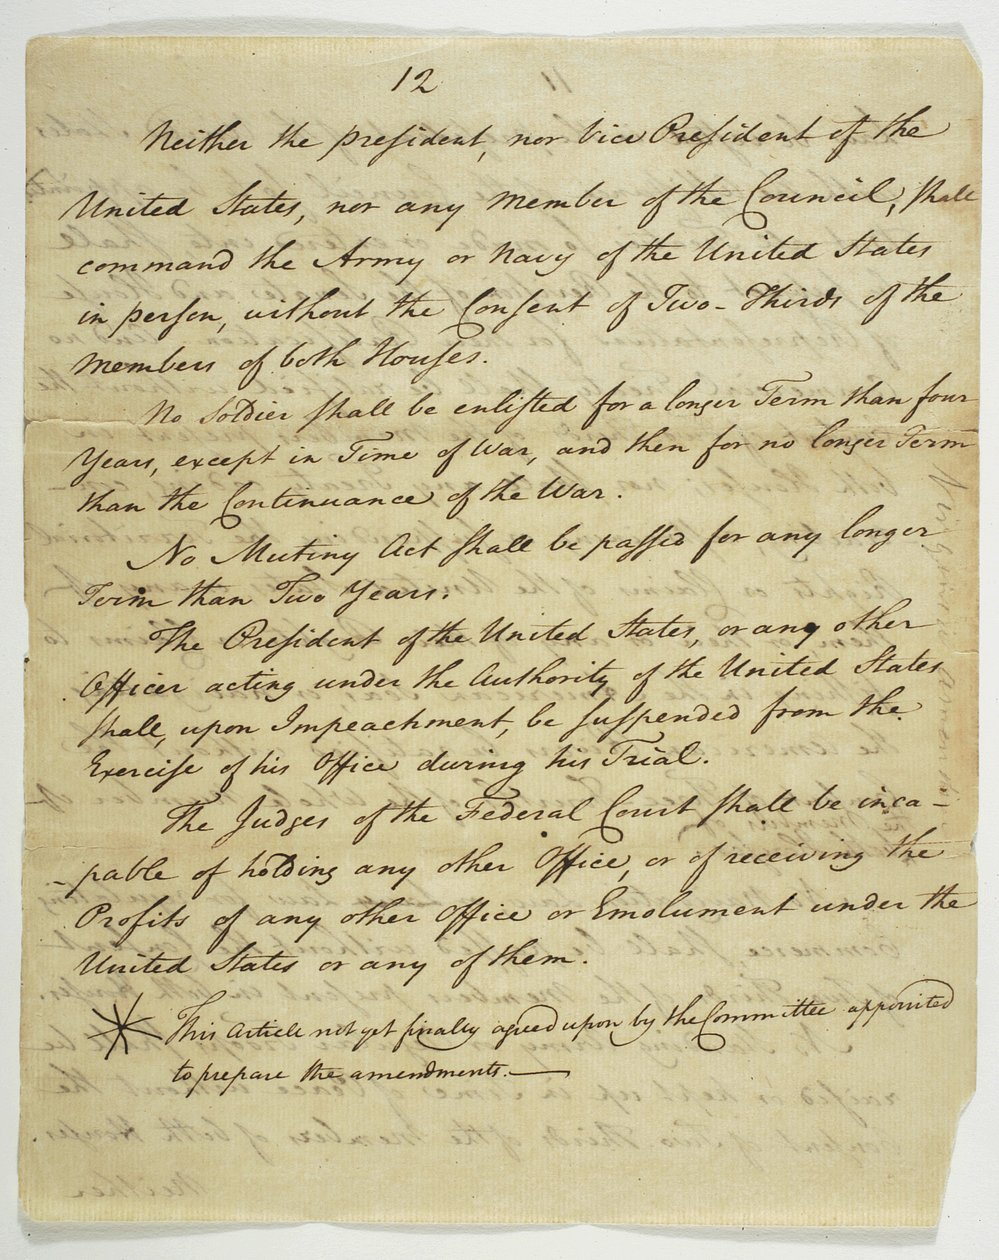 12
Neither the president, nor Vice President of the
United States, nor any member of the Council, shall
command the Army or Navy of the United States
in person, without the Consent of Two-Thirds of the
members of both Houses.
No Soldier shall be enlisted for a longer Term than four
Years, except in Time of War, and then for no longer Term
than the Continuance of the War.
No Mutiny Act shall be passed for any longer
Term than Two Years.
The President of the United States, or any other
Officer acting under the Authority of the United States
shall, upon Impeachment, be suspended from the
Exercise of his Office during his Trial.
The Judges of the Federal Court shall be inca-
-pable of holding any other Office, or of receiving the
Profits of any other Office or Emolument under the
United States or any of them.
This Article not yet finally agreed upon by the Committee appointed
to prepare the amendments.—